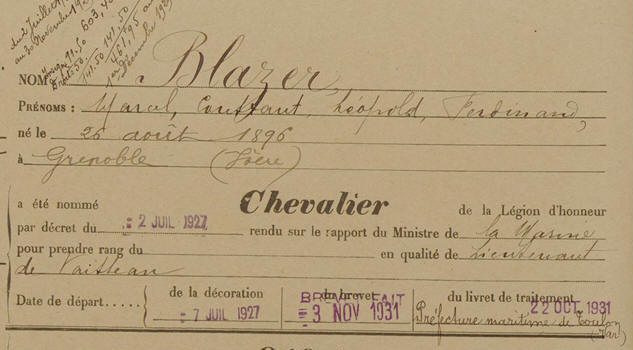 du 2 Juillet
au 30 Novembre 192
91.50 603,
141.50 141.50
461.95
Décembre 192
NOM Blazer
PRÉNOMS : Marcel, Constant, Léopold, Ferdinand,
né le 26 août 1896
à Grenoble (Isère)
a été nommé Chevalier de la Légion d'honneur
par décret du = 2 JUIL 1927 rendu sur le rapport du Ministre de la Marine
pour prendre rang du en qualité de Lieutenant
de Vaisseau
Date de départ..... de la décoration du brevet du livret de traitement
BREVET FAIT
= 7 JUIL 1927 = 3 NOV 1931 22 OCT 1931
Préfecture maritime de Toulon
(Var)